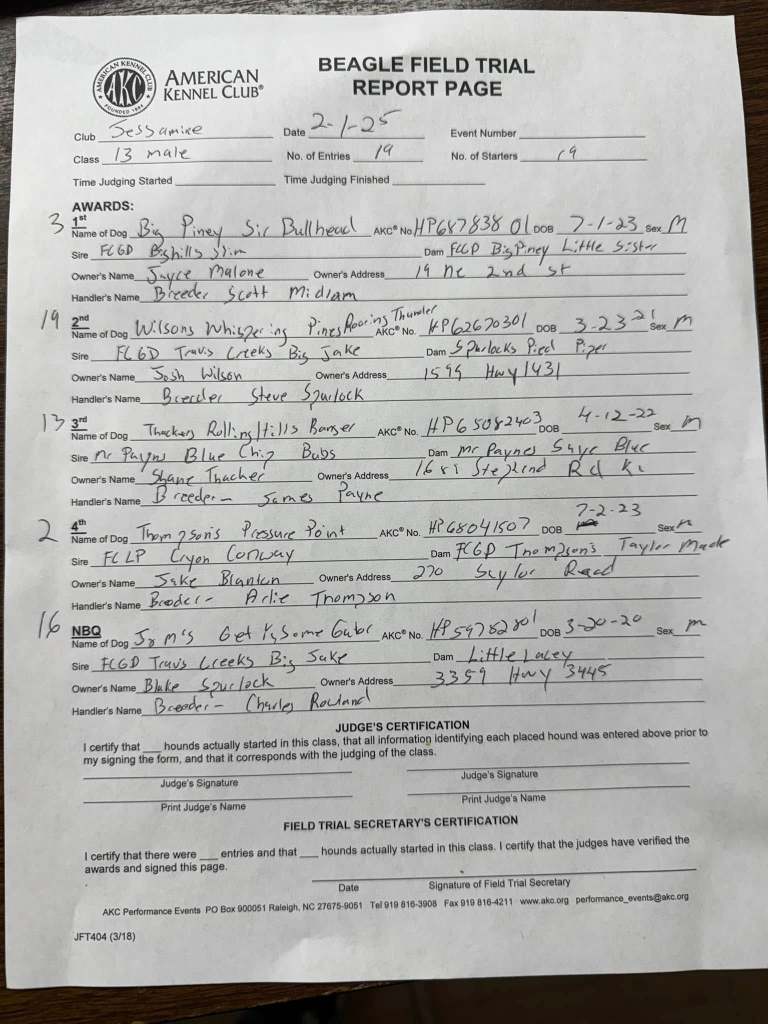 AMERICAN KENNEL CLUB
AKC
FOUNDED 1884
AMERICAN
KENNEL CLUB®
BEAGLE FIELD TRIAL
REPORT PAGE
Club Jessamine Date 2-1-25 Event Number
Class 13 male No. of Entries 19 No. of Starters 19
Time Judging Started Time Judging Finished
AWARDS:
3 1st
Name of Dog Big Piney Sir Bullhead AKC® No HP687838 01 DOB 7-1-23 Sex M
Sire FCGD Bighills Slim Dam FCGD Big Piney Little Sister
Owner's Name Joyce Malone Owner's Address 19 Ne 2nd st
Handler's Name Breeder Scott Midlam
19 2nd
Name of Dog Wilsons Whispering Pines Roaring Thunder AKC® No. HP62670301 DOB 3-23-21 Sex M
Sire FCGD Travis Creeks Big Jake Dam Spurlocks Pied Piper
Owner's Name Josh Wilson Owner's Address 1599 Hwy 1431
Handler's Name Breeder Steve Spurlock
13 3rd
Name of Dog Thackers Rolling Hills Banger AKC® No. HP65082403 DOB 4-12-22 Sex M
Sire Mr Payns Blue Chip Bubs Dam Mr Paynes Blue
Owner's Name Shane Thacker Owner's Address Rd
Handler's Name Breeder- James Payne
2 4th
Name of Dog Thompson's Pressure Point AKC® No. HP68041507 DOB 7-2-23 Sex M
Sire FCLP Cryon Conway Dam FCGD Thompson's Taylor Made
Owner's Name Jake Blanton Owner's Address 270 Road
Handler's Name Breeder- Arlie Thompson
16 NBQ
Name of Dog Get Gator AKC® No. HP59782801 DOB 3-20-20 Sex M
Sire FCGD Travis Creeks Big Jake Dam Little Lacey
Owner's Name Blake Spurlock Owner's Address 3359 Hwy 3445
Handler's Name Breeder- Charles Rowland
JUDGE'S CERTIFICATION
I certify that ___ hounds actually started in this class, that all information identifying each placed hound was entered above prior to
my signing the form, and that it corresponds with the judging of the class.
Judge's Signature Judge's Signature
Print Judge's Name Print Judge's Name
FIELD TRIAL SECRETARY'S CERTIFICATION
I certify that there were ___ entries and that ___ hounds actually started in this class. I certify that the judges have verified the
awards and signed this page.
Date Signature of Field Trial Secretary
AKC Performance Events PO Box 900051 Raleigh, NC 27675-9051 Tel 919 816-3908 Fax 919 816-4211 www.akc.org performance_events@akc.org
JFT404 (3/18)